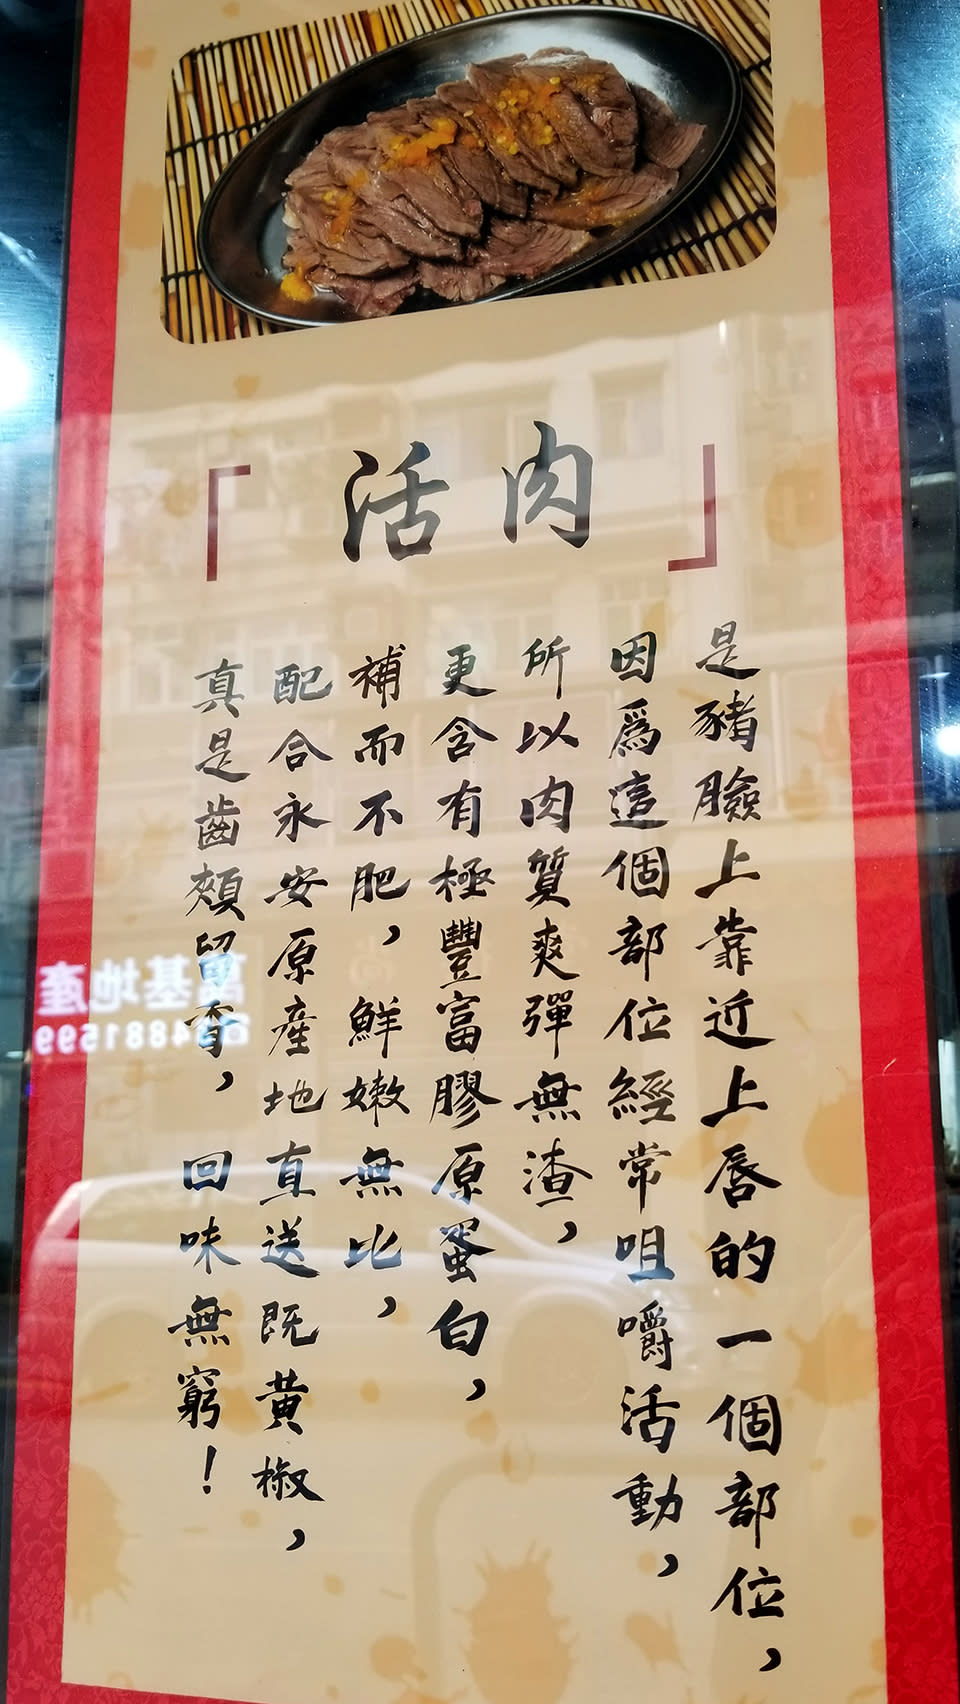 「活肉」
是豬臉上靠近上唇的一個部位，
因爲這個部位經常咀嚼活動，
所以肉質爽彈無渣，
更含有極豐富膠原蛋白，
補而不肥，鮮嫩無比，
配合永安原產地直送既黃椒，
真是齒頰留香，回味無窮！
萬基地產
24881599